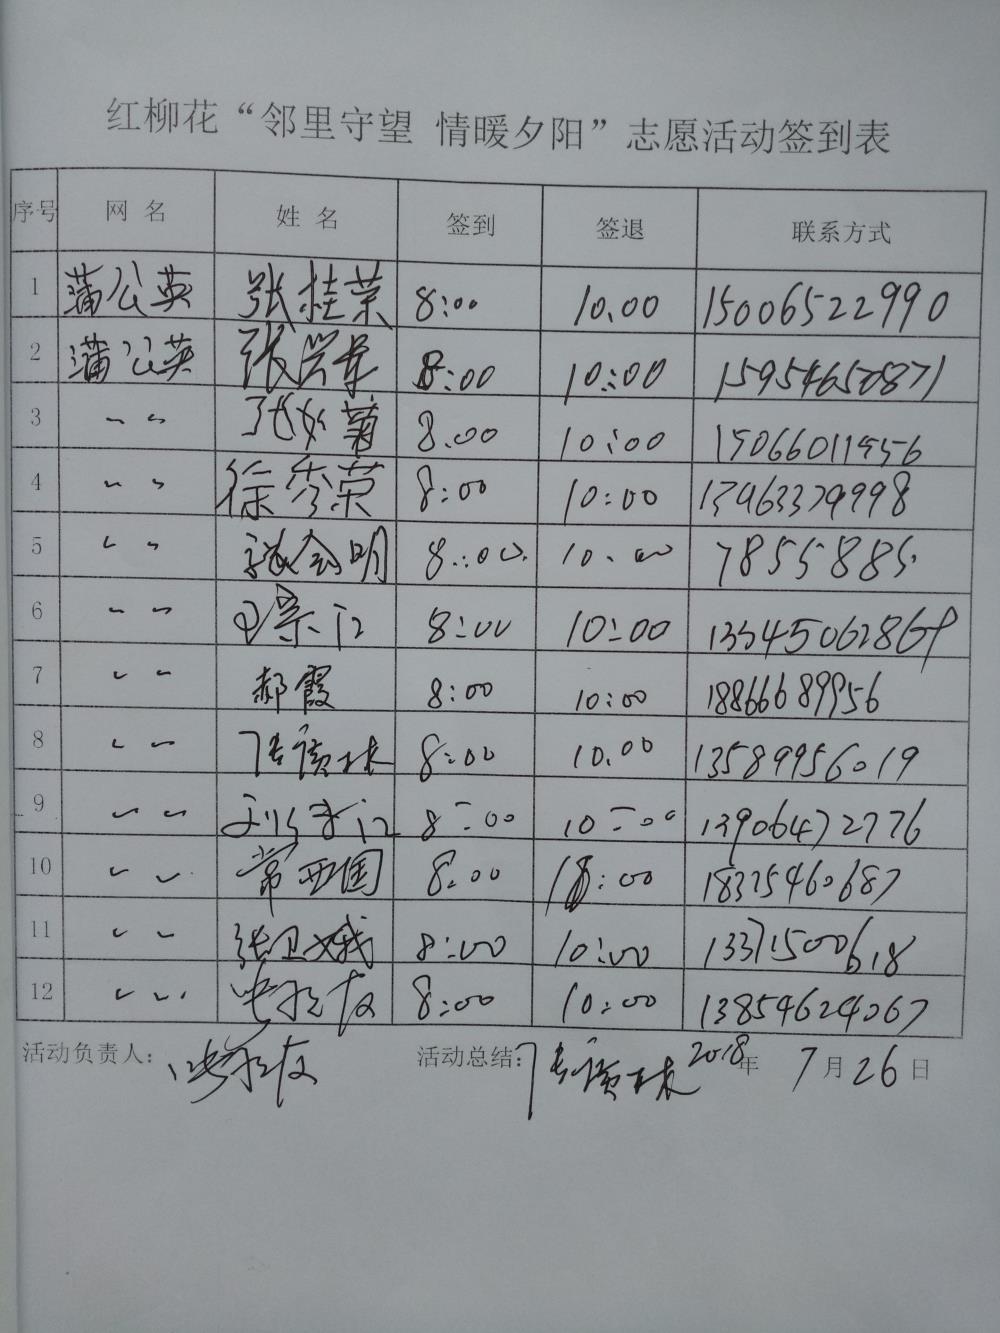 红柳花“邻里守望 情暖夕阳”志愿活动签到表
序号 网名 姓名 签到 签退 联系方式
1 蒲公英 张桂荣 8:00 10.00 15006522990
2 蒲公英 张兴军 8:00 10:00 15954650871
3 〃 8.00 10:00 15066011956
4 〃 徐秀荣 8:00 10:00
5 〃 金明 8:00 10.00 7855885
6 〃 8:00 10:00
7 〃 郝霞 8:00 10:00 18866689956
8 〃 8:00 10.00 13589956019
9 〃 8:00 10:00 13906472776
10 〃 常西国 8:00 10:00 18325460687
11 〃 张卫娥 8:00 10:00 13371500618
12 〃 8:00 10:00 13854624067
活动负责人: 活动总结: 2018年 7月26日